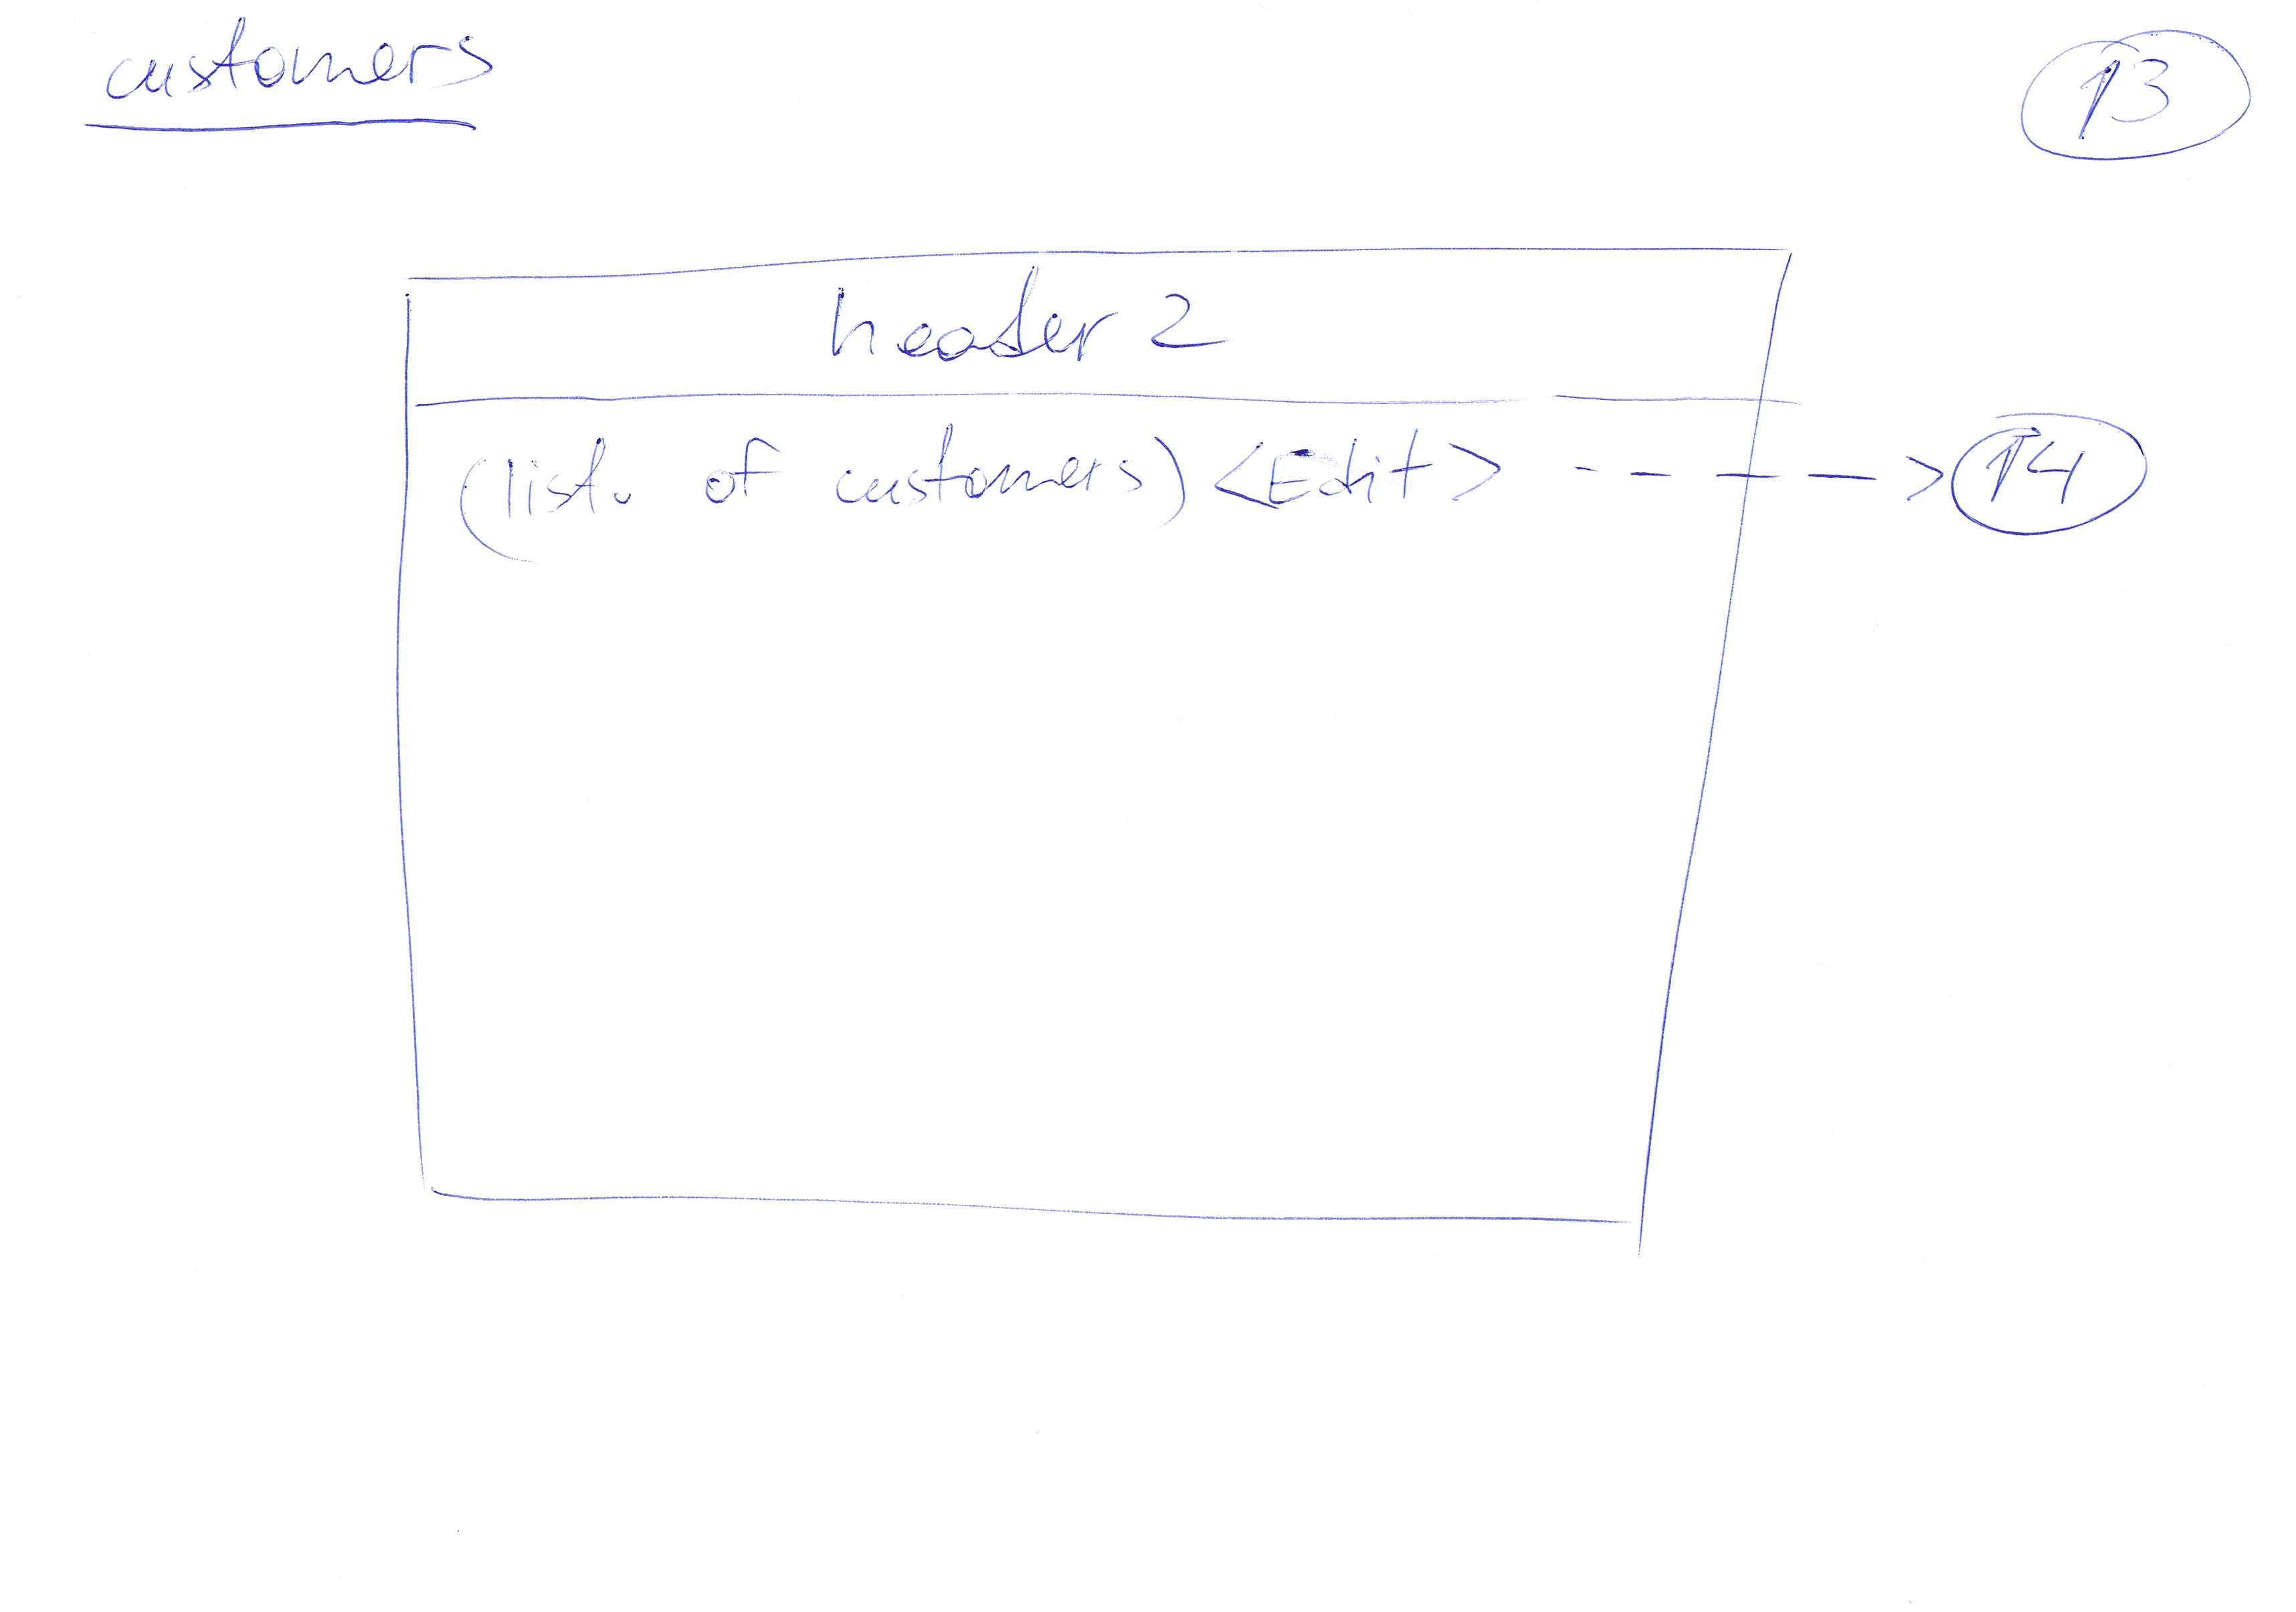 customers
13
header 2
(list. of customers) <Edit> - - - - -> 14